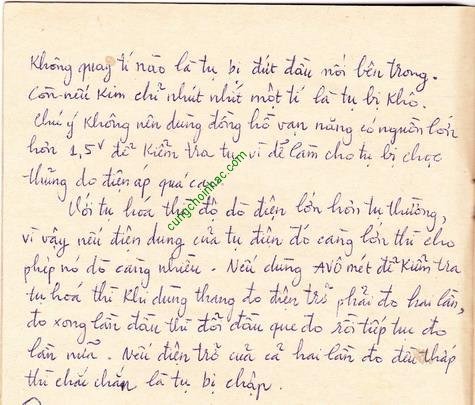 Không quay tí nào là tụ bị đứt đầu nối bên trong.
Còn nếu Kim chỉ nhút nhít một tí là tụ bị khô.
Chú ý không nên dùng đồng hồ vạn năng có nguồn lớn
hơn 1,5v để kiểm tra tụ vì dễ làm cho tụ bị chọc
thủng do điện áp quá cao.
Với tụ hoá thì độ dò điện lớn hơn tụ thường,
vì vậy nếu điện dung của tụ điện đó càng lớn thì cho
phép nó dò càng nhiều. Nếu dùng AVômét để kiểm tra
tụ hoá thì khi dùng thang đo điện trở phải đo hai lần,
đo xong lần đầu thì đổi đầu que đo rồi tiếp tục đo
lần nữa. Nếu điện trở của cả hai lần đo đều thấp
thì chắc chắn là tụ bị chập.
cungchoinhac.com